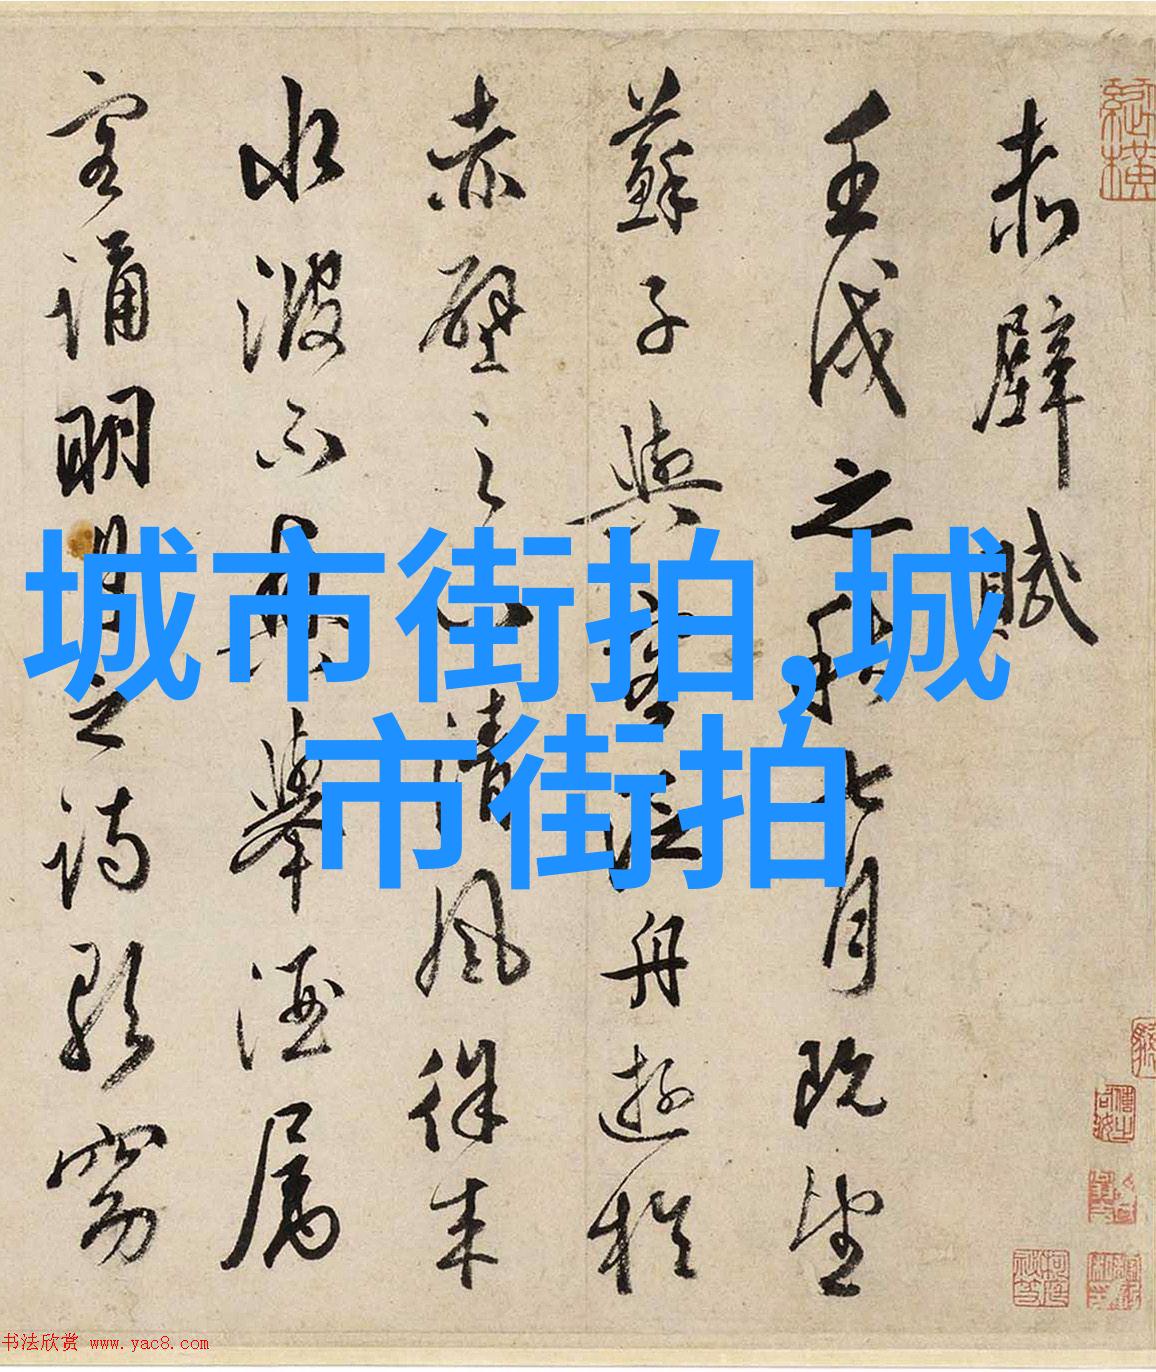 赤壁賦
壬戌之秋七月既望
蘇子與客泛舟遊於
赤壁之下清風徐来
水波不興舉酒属
客誦明月之詩歌窈
城市街拍,城
市街拍
书法欣赏 www.yac8.com